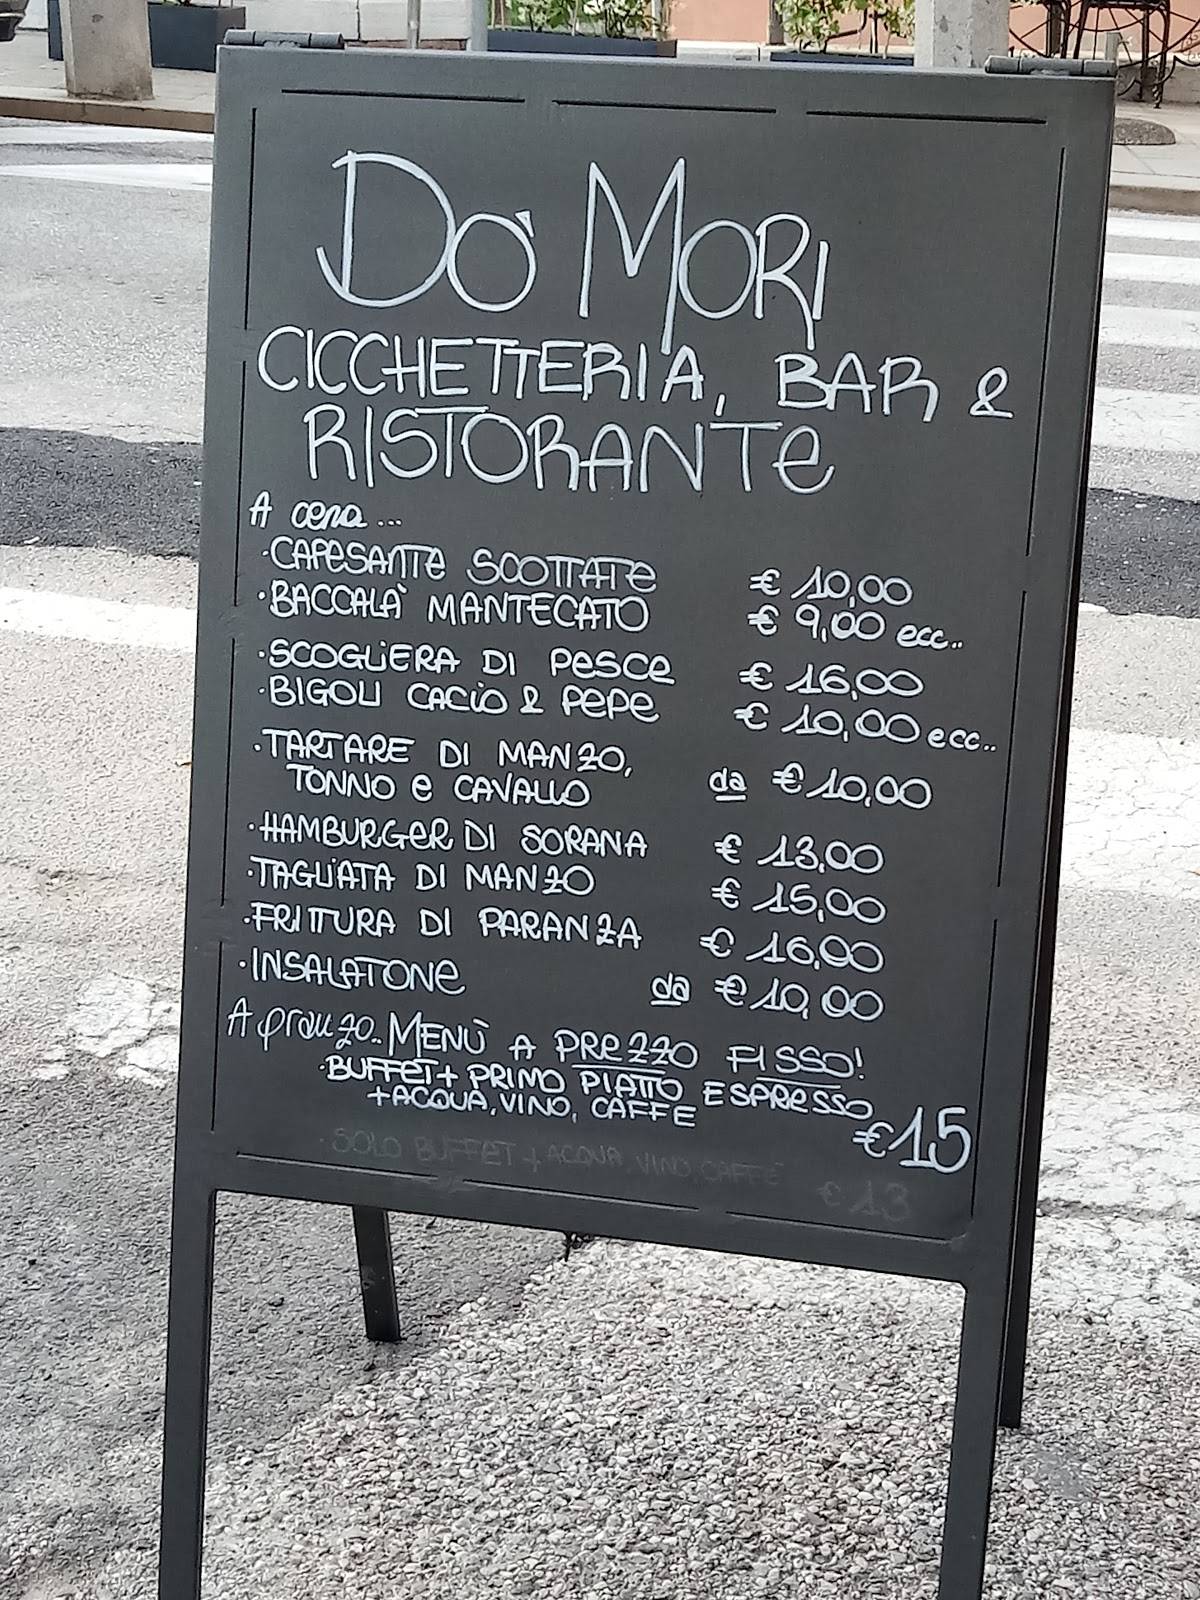 DO' MORI
CICCHETTERIA, BAR &
RISTORANTE
A cena...
·CAPESANTE SCOTTATE € 10,00
·BACCALÀ MANTECATO € 9,00 ecc..
·SCOGLIERA DI PESCE € 16,00
·BIGOLI CACIO & PEPE € 10,00 ecc..
·TARTARE DI MANZO,
TONNO e CAVALLO da € 10,00
·HAMBURGER DI SORANA € 13,00
·TAGLIATA DI MANZO € 15,00
·FRITTURA DI PARANZA € 16,00
·INSALATONE da € 10,00
A pranzo.. MENÙ A PREZZO FISSO!
·BUFFET + PRIMO PIATTO ESPRESSO
+ACQUA, VINO, CAFFE €15
·SOLO BUFFET + ACQUA, VINO, CAFFE
€ 13